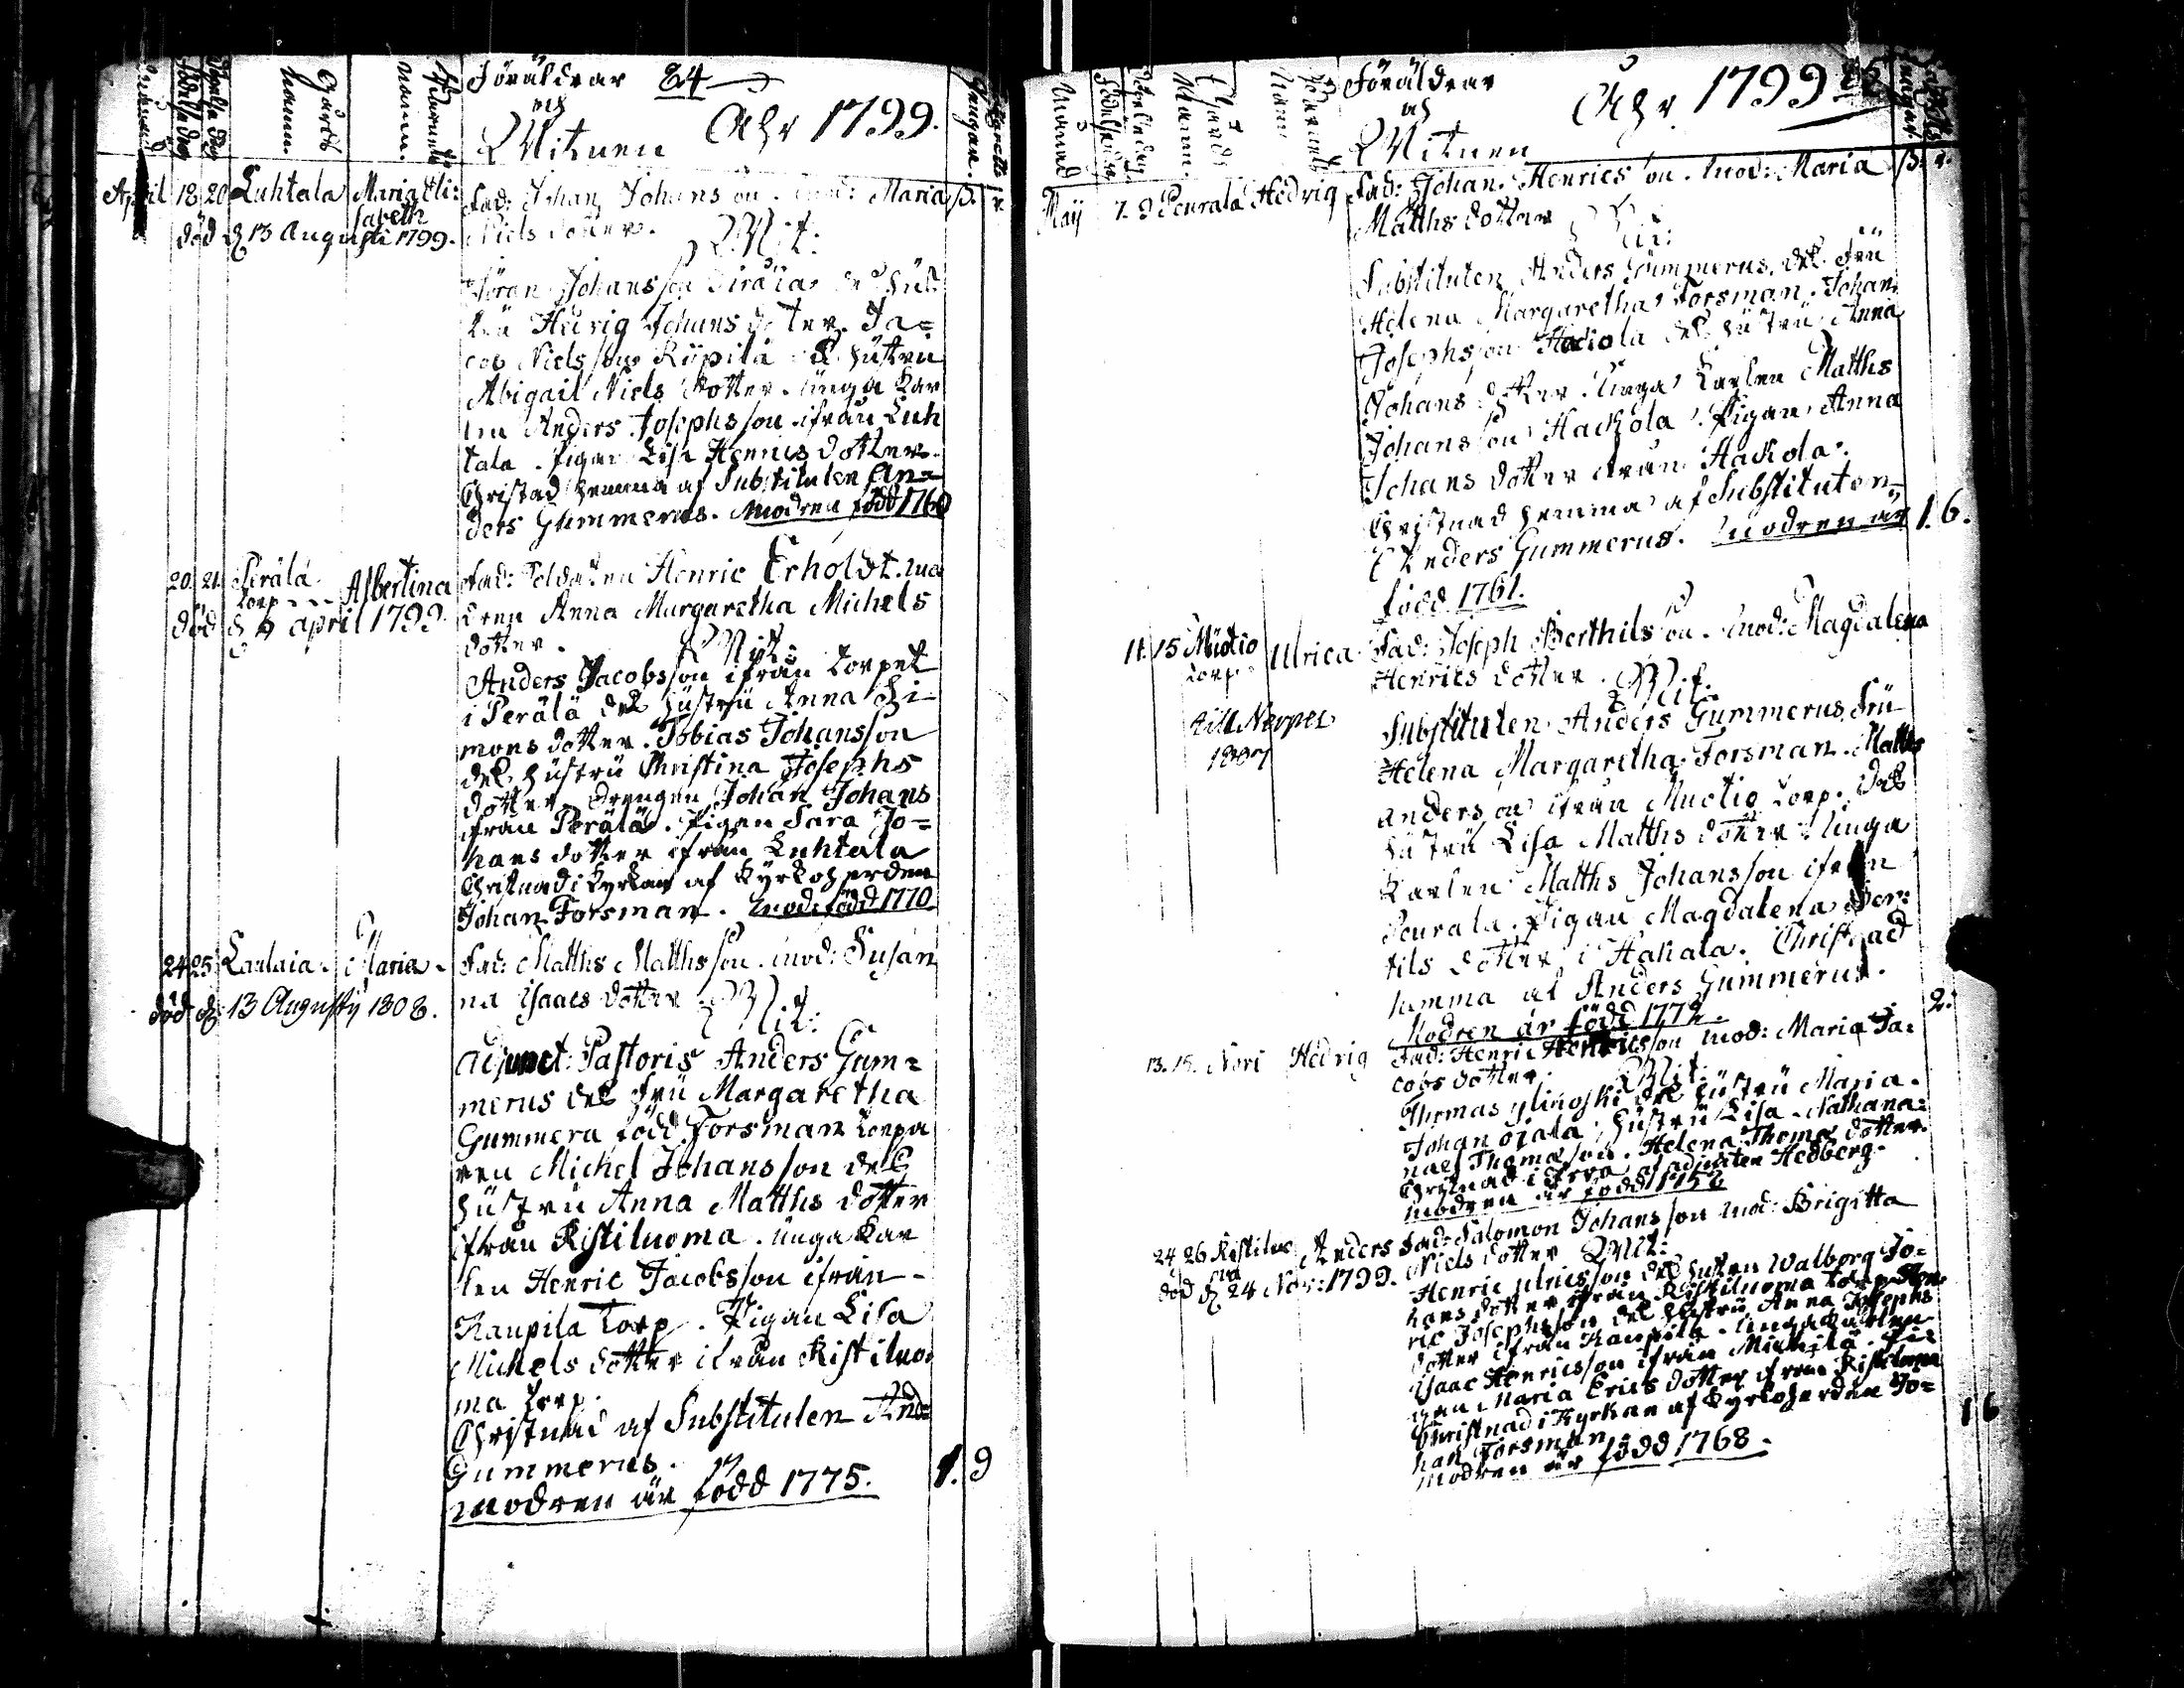 Föräldrar 84
och
Witnen Åhr 1799.
Månad
Födelse dag
Döpelse dag
Gårds namn.
Barnets namn.
April 18 20 Luhtala Maria Eli: Fad: Johan Johans son. mod: Maria
sabeth
död d 13 Augusti 1799. Niels dotter. Wit:
Jöran Johansson
Hedvig Johans dotter. Ja=
cob Nielsson Riipilä hustru
Abigail Niels dotter. unga kar
len Anders Josephsson ifrån Luh
tala. Pigan Lisa Henrics dotter.
Christnad hemma af Substituten An=
ders Gummerus. Modren född 1760
20 21 Perälä Albertina Fad: Soldaten Henric Erholdt. mo
torp
dren Anna Margaretha Michels
död d april 1799.
dotter. Wit:
Anders Jacobsson ifrån torpet
i Perälä dess hustru Anna Si
mons dotter. Tobias Johansson
dess hustru Christina Josephs
dotter. Drengen Johan Johans
ifrån Perälä. Pigan Sara Jo=
hans dotter ifrån Luhtala
Christnad i kyrkan af kyrkoherden
Johan Forsman. mod: född 1770
24 25 Laulaia. Maria. Fad: Matths Matthsson. mod: Susan
död d 13 Augusty 1808. na Isaacs dotter Wit:
adjunct: Pastoris Anders Gum=
merus dess fru Margaretha
Gummera född Forsman torpa
ren Michel Johansson dess
hustru Anna Matths dotter
ifrån Ristiluoma. unga kar
len Henric Jacobsson ifrån
Kaupila torp. Pigan Lisa
Michels dotter ifrån Ristiluo
ma torp.
Christnad af Substituten And:
Gummerus.
modren är född 1775. 1. 9
Föräldrar
och
Witnen Åhr 1799 85
Månad
Gårds Namn.
May 7. 9 Peurala Hedvig Fad: Johan Henrics son. Mod: Maria
Matths dotter Wit:
Substituten Anders Gummerus, dess fru
Helena Margaretha Forsman. Johan
Josephsson Hackola dess hustru Anna
Johans dotter. Unga karlen Matths
Johansson Hackola. Pigan Anna
Johans dotter ifrån Hackola.
Christnad hemma af Substituten
Anders Gummerus. Modren är 1. 6.
född 1761.
11. 15 Muotio Ulrica Fad: Joseph Berthilsson. mod: Magdalena
torp
Henrics dotter. Wit:
till Nerpes
1807
Substituten Anders Gummerus, fru
Helena Margaretha Forsman. Matths
Andersson ifrån Muotio torp. dess
hustru Lisa Matths dotter. Unga
Karlen Matths Johansson ifrån
Peurala. Pigan Magdalena Ber:
tils dotter i Hakala. Christnad
hemma af Anders Gummerus.
Modren är född 1772. 2.
13. 15. Nori Hedvig Fad: Henric Henricsson mod: Maria Ja:
cobs dotter. Wit:
Thomas ylinoski dess hustru Maria.
Johan ojala, hustru Lisa. Nathana=
nael Thomasson. Helena Thomas dotter.
Christnad af adjuncten Hedberg.
modren är född 1756
24 26 Ristiluo Anders Fad: Salomon Johansson mod: Brigitta
ma
död d 24 Nov: 1799. Niels dotter Wit:
Henric ulricsson dess hustru Walborg Jo=
hans dotter ifrån Ristiluoma torp. Hen
ric Josephsson dess hustru Anna Josephs
dotter ifrån Kaupila. Unga karlen
Isaac Henricsson ifrån Mickilä. Pi=
gan Maria Erics dotter ifrån Ristiluoma
Christnad i Kyrkan af kyrkoherden Jo=
han Forsman. 1 6
modren är född 1768.